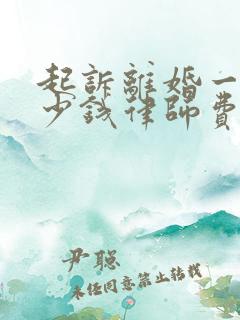 起訴離婚一
少錢律師費
尹聪
未经同意禁止转载